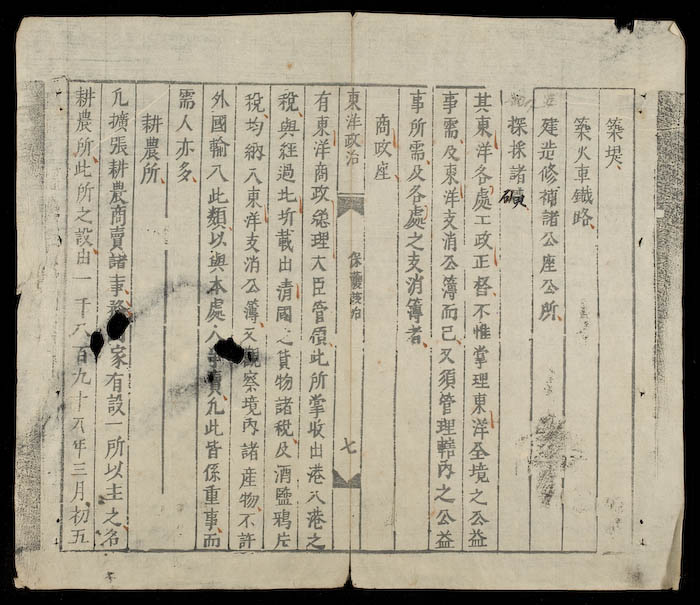 築堤
築火車鐵路
建造修補諸公座公所
探採諸礦
其東洋各處工政正督不惟掌理東洋全境之公益
事需及東洋支消公簿而已又須管理轄內之公益
事所需及各處之支消簿者
商政座
東洋政治 保護該治 七
有東洋商政總理大臣管領此所掌收出港入港之
稅與經過此圻載出清國之貨物諸稅及酒鹽鴉片
稅均納入東洋支消公簿又觀察境內諸產物不許
外國輸入此類以與本處人爭賣凡此皆係重事而
需人亦多
耕農所
凡擴張耕農商賣諸事務家有設一所以主之名
耕農所此所之設由一千八百九十八年三月初五